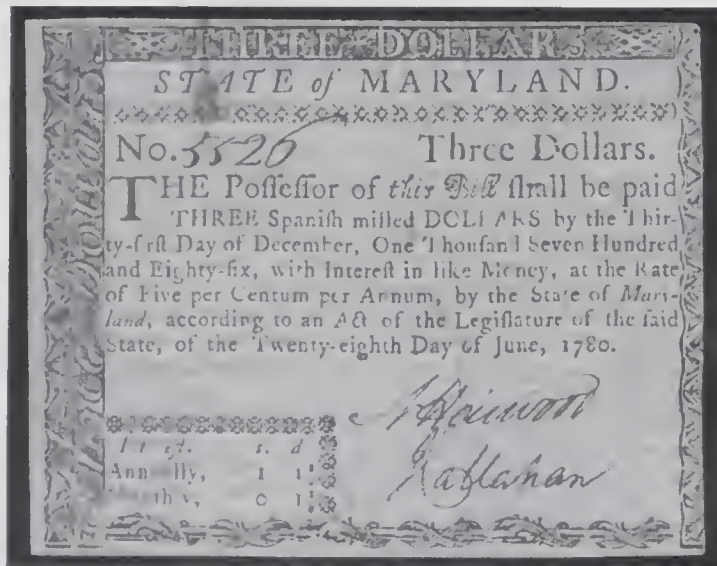 THREE DOLLARS
STATE of MARYLAND.
No. 5526 Three Dollars.
THE Poſſeſſor of this Bill ſhall be paid
THREE Spaniſh milled DOLLARS by the Thir-
ty-firſt Day of December, One Thouſand Seven Hundred
and Eighty-ſix, with Intereſt in like Money, at the Rate
of Five per Centum per Annum, by the State of Mary-
land, according to an Act of the Legiſlature of the ſaid
State, of the Twenty-eighth Day of June, 1780.
s. d
Annually, 1 1
0 1